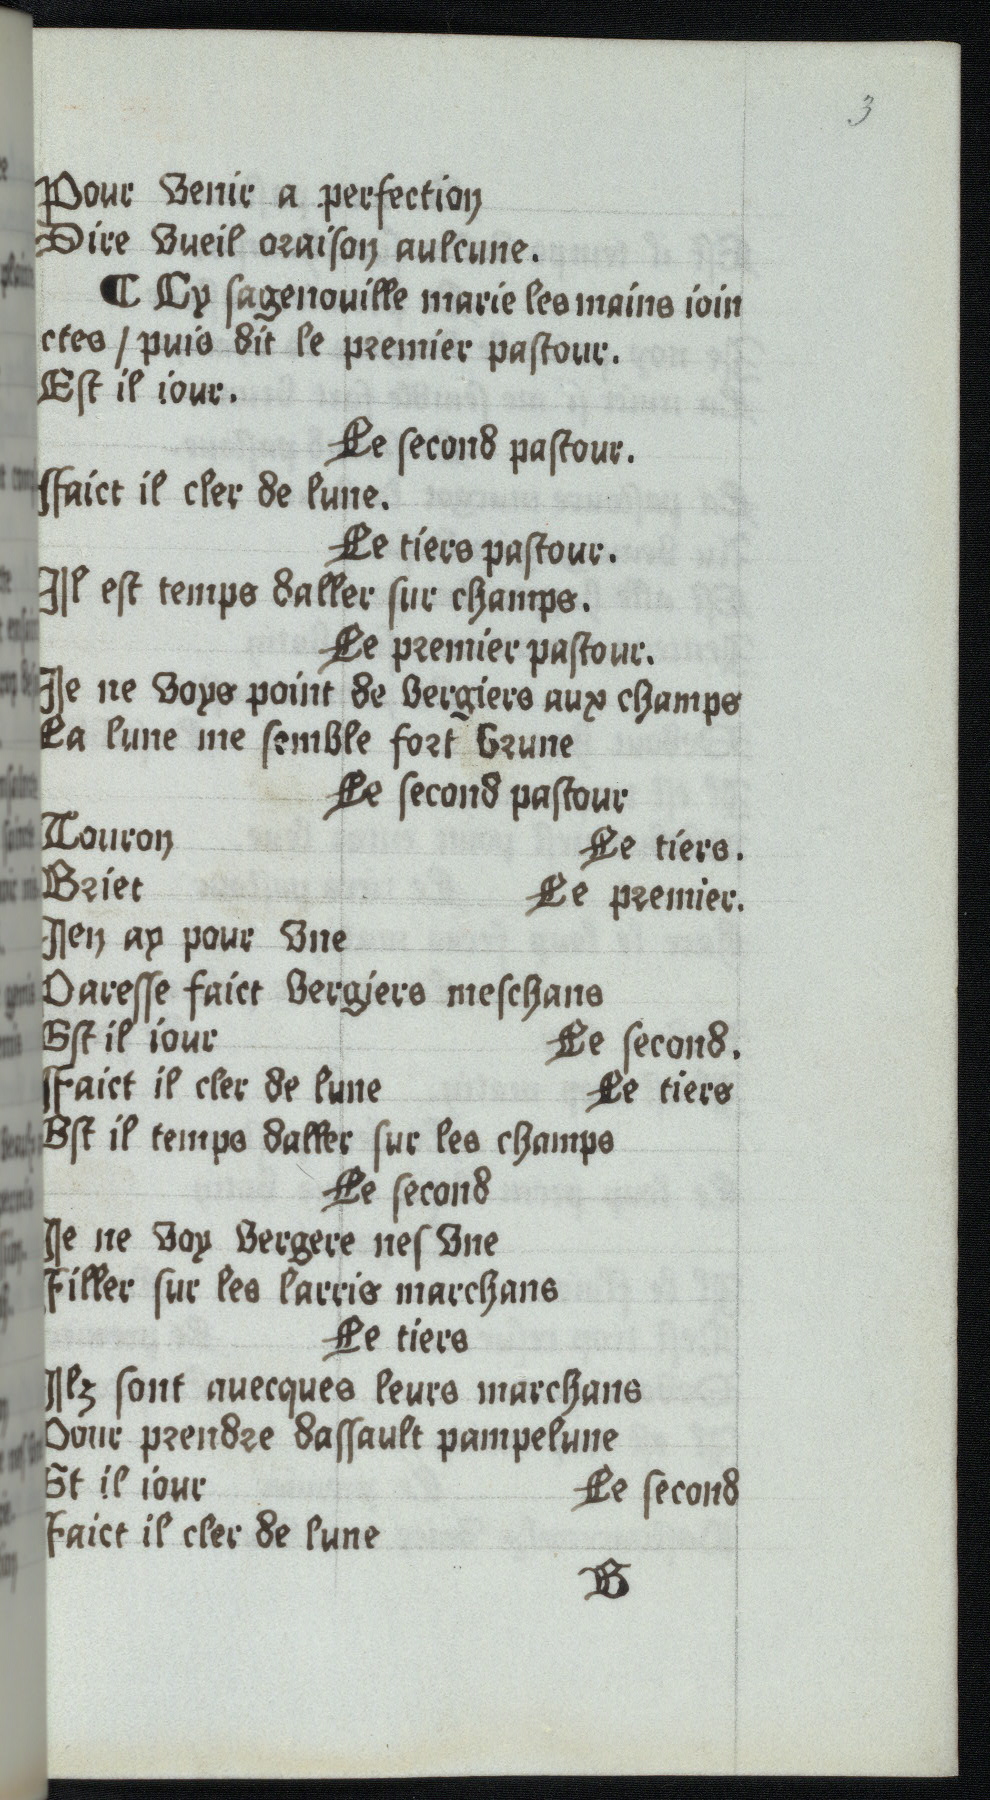 3
Pour venir a perfection
Dire vueil oraison aulcune.
¶ Cy sagenouille marie les mains ioin
ctes / puis dit le premier pastour.
Est il iour.
Le second pastour.
Ffaict il cler de lune.
Le tiers pastour.
Il est temps daller sur champs.
Le premier pastour.
Ie ne voys point de vergiers aux champs
La lune me semble fort brune
Le second pastour
Touron Le tiers.
Briet Le premier.
Ien ay pour vne
Paresse faict vergiers meschans
Est il iour Le second.
Ffaict il cler de lune Le tiers
Est il temps daller sur les champs
Le second
Ie ne voy vergere nesvne
Filler sur les larris marchans
Le tiers
Ilz sont auecques leurs marchans
Pour prendre dassault pampelune
St il iour Le second
Faict il cler de lune
B